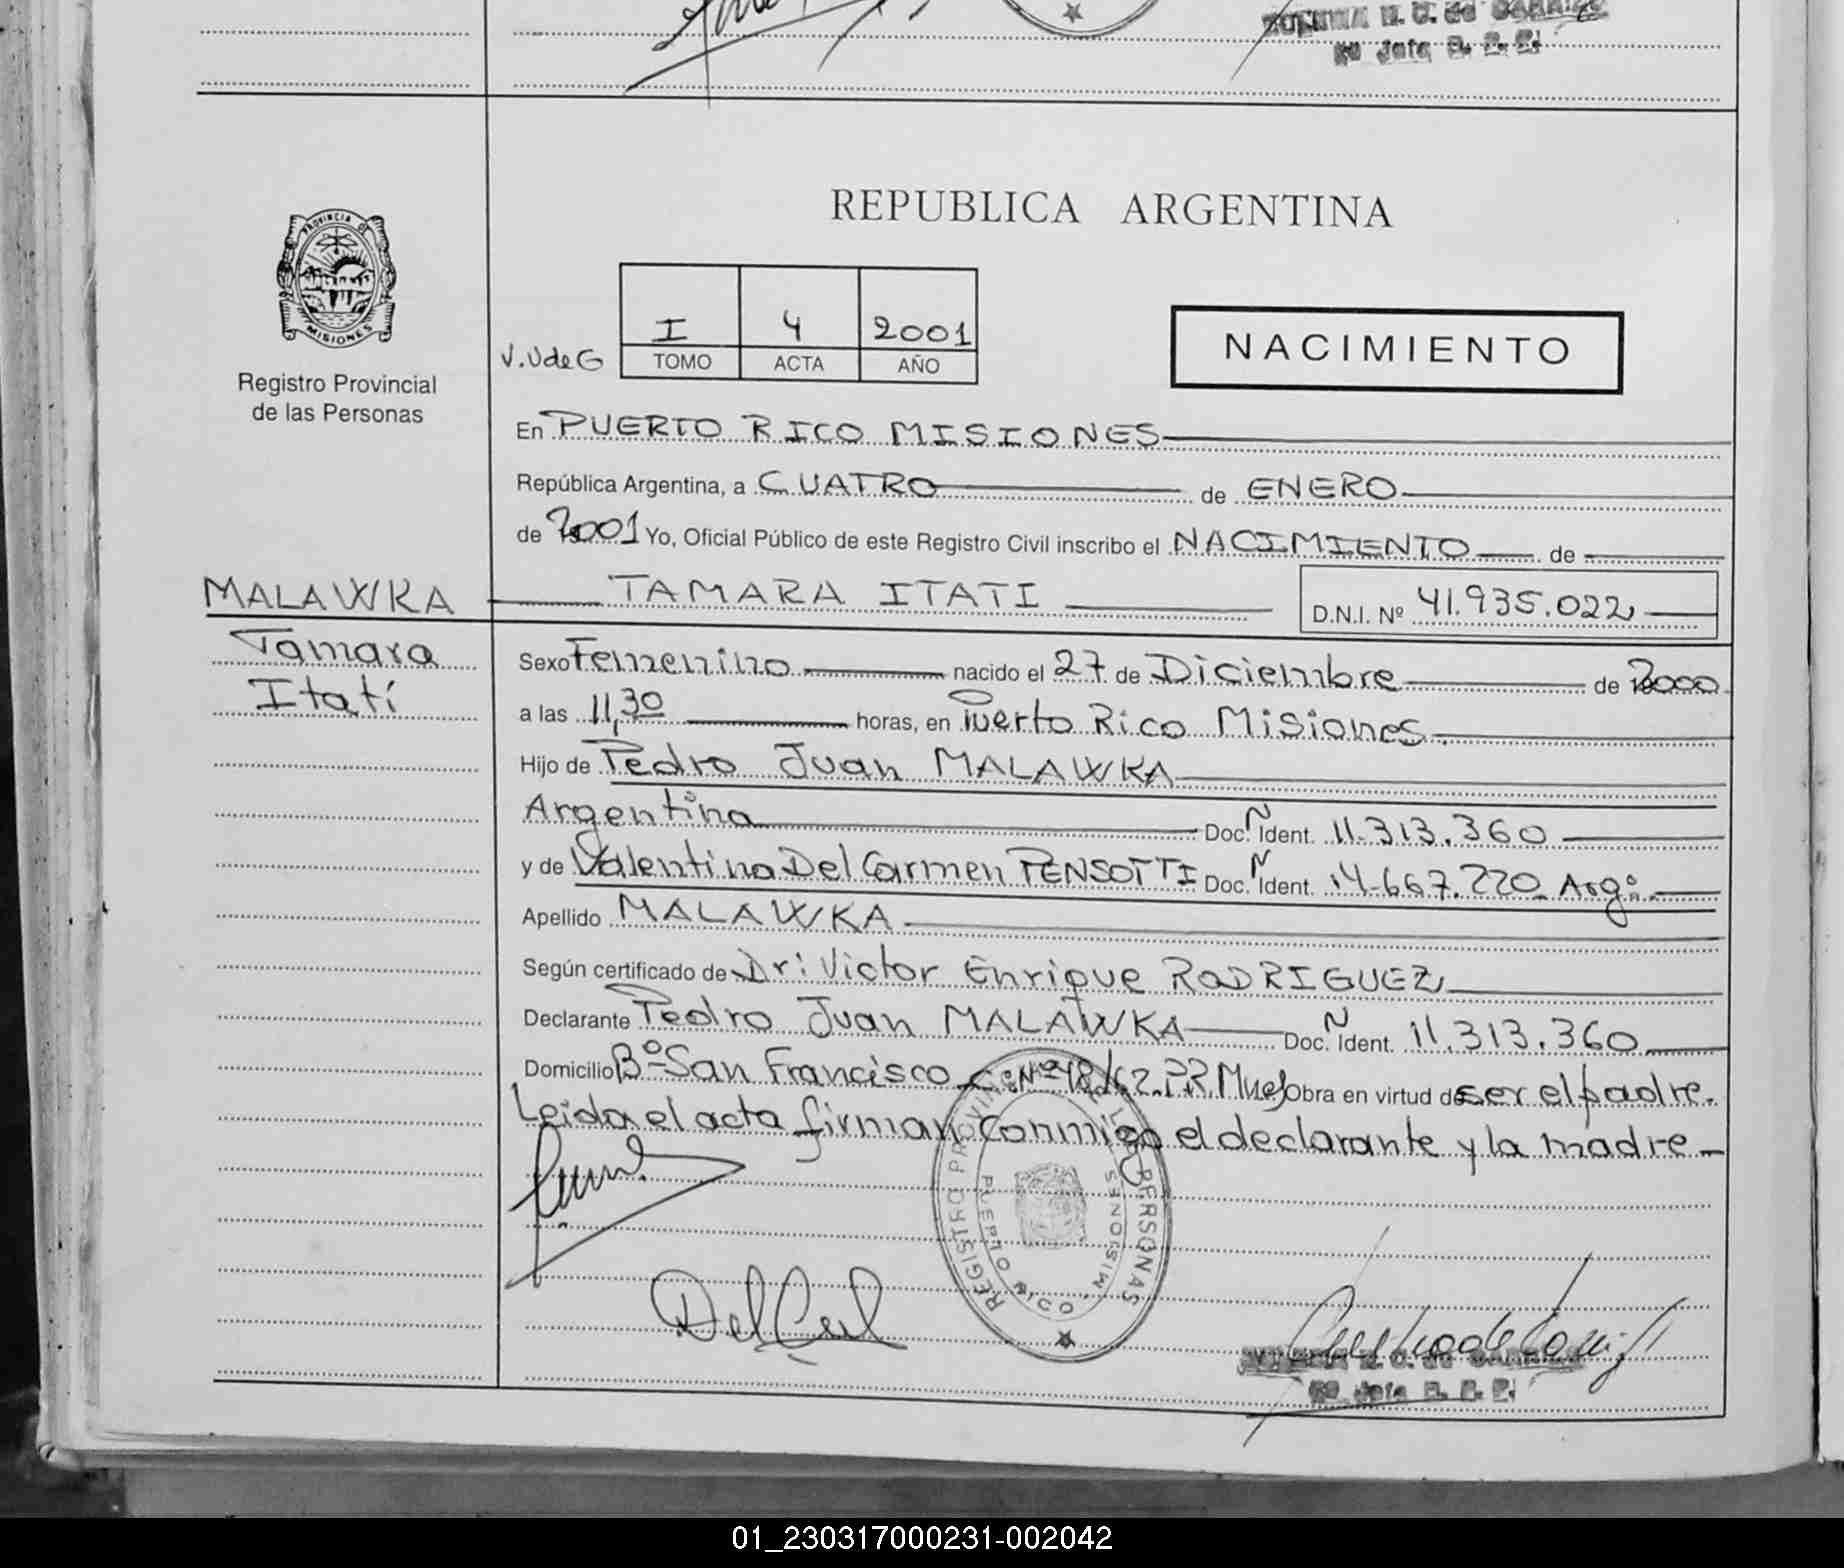 REPUBLICA ARGENTINA
PROVINCIA DE
MISIONES
Registro Provincial
de las Personas
V.UdeG
I 4 2001
TOMO ACTA AÑO
NACIMIENTO
En PUERTO RICO MISIONES
República Argentina, a CUATRO de ENERO
de 2001 Yo, Oficial Público de este Registro Civil inscribo el NACIMIENTO de
MALAWKA TAMARA ITATI D.N.I. Nº 41.935.022
Tamara
Itatí
Sexo Femenino nacido el 27 de Diciembre de 2000
a las 11,30 horas, en Puerto Rico Misiones.
Hijo de Pedro Juan MALAWKA
Argentina Doc. N Ident. 11.313.360
y de Valentina Del Carmen PENSOTTI Doc. N Ident. 14.667.220 Arg:
Apellido MALAWKA
Según certificado de Dr: Victor Enrique RODRIGUEZ
Declarante Pedro Juan MALAWKA Doc. N Ident. 11.313.360
Domicilio Bº San Francisco C: Nº 48 Obra en virtud de ser el padre.
Leida el acta firman conmigo el declarante y la madre
REGISTRO PROVINCIAL DE LAS PERSONAS
PUERTO RICO MISIONES
01_230317000231-002042